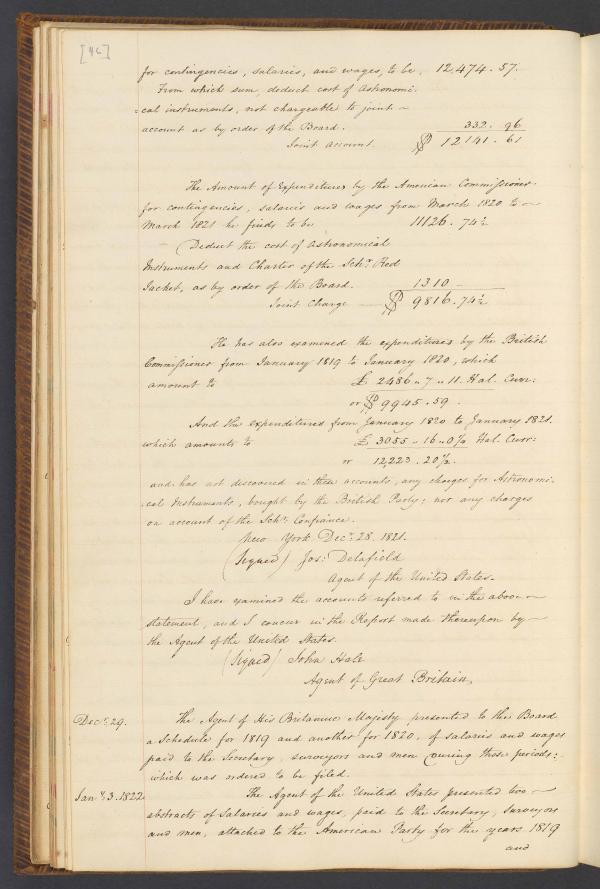 [46]
for contingencies, salaries, and wages, to be, 12,474. 57.
From which sum, deduct cost of astronomi-
=cal instruments, not chargeable to joint
account as by order of the Board. 332. 96
Joint account. $ 12141. 61
The Amount of Expenditures by the American Commissioner
for contingencies, salaries and wages from March 1820 to
March 1821 he finds to be 11126. 74½
Deduct the cost of astronomical
Instruments and Charter of the Schr. Red
Jacket, as by order of the Board. 1310 —
Joint Charge $ 9816. 74½
He has also examined the expenditures by the British
Commissioner from January 1819 to January 1820, which
amount to £ 2486 " 7 " 11. Hal. Curr:
or $ 9945. 59.
And the expenditures from January 1820 to January 1821.
which amounts to £ 3055 " 16 " 0½ Hal. Curr:
or 12,223. 20½.
and has not discovered in these accounts, any charges for Astronomi-
cal Instruments, bought by the British Party; nor any charges
on account of the Schr. Confiance.
New York Decr. 28. 1821.
(Signed) Jos: Delafield
Agent of the United States.
I have examined the accounts referred to in the above
statement, and I concur in the Report made thereupon by
the Agent of the United States.
(Signed) John Hale
Agent of Great Britain.
Decr. 29. The Agent of His Britannic Majesty presented to the Board
a Schedule for 1819 and another for 1820, of salaries and wages
paid to the Secretary, surveyors and men during those periods;
which was ordered to be filed.
Jany. 3. 1822. The Agent of the United States presented two
abstracts of Salaries and wages, paid to the Secretary, Surveyors
and men, attached to the American Party for the years 1819
and